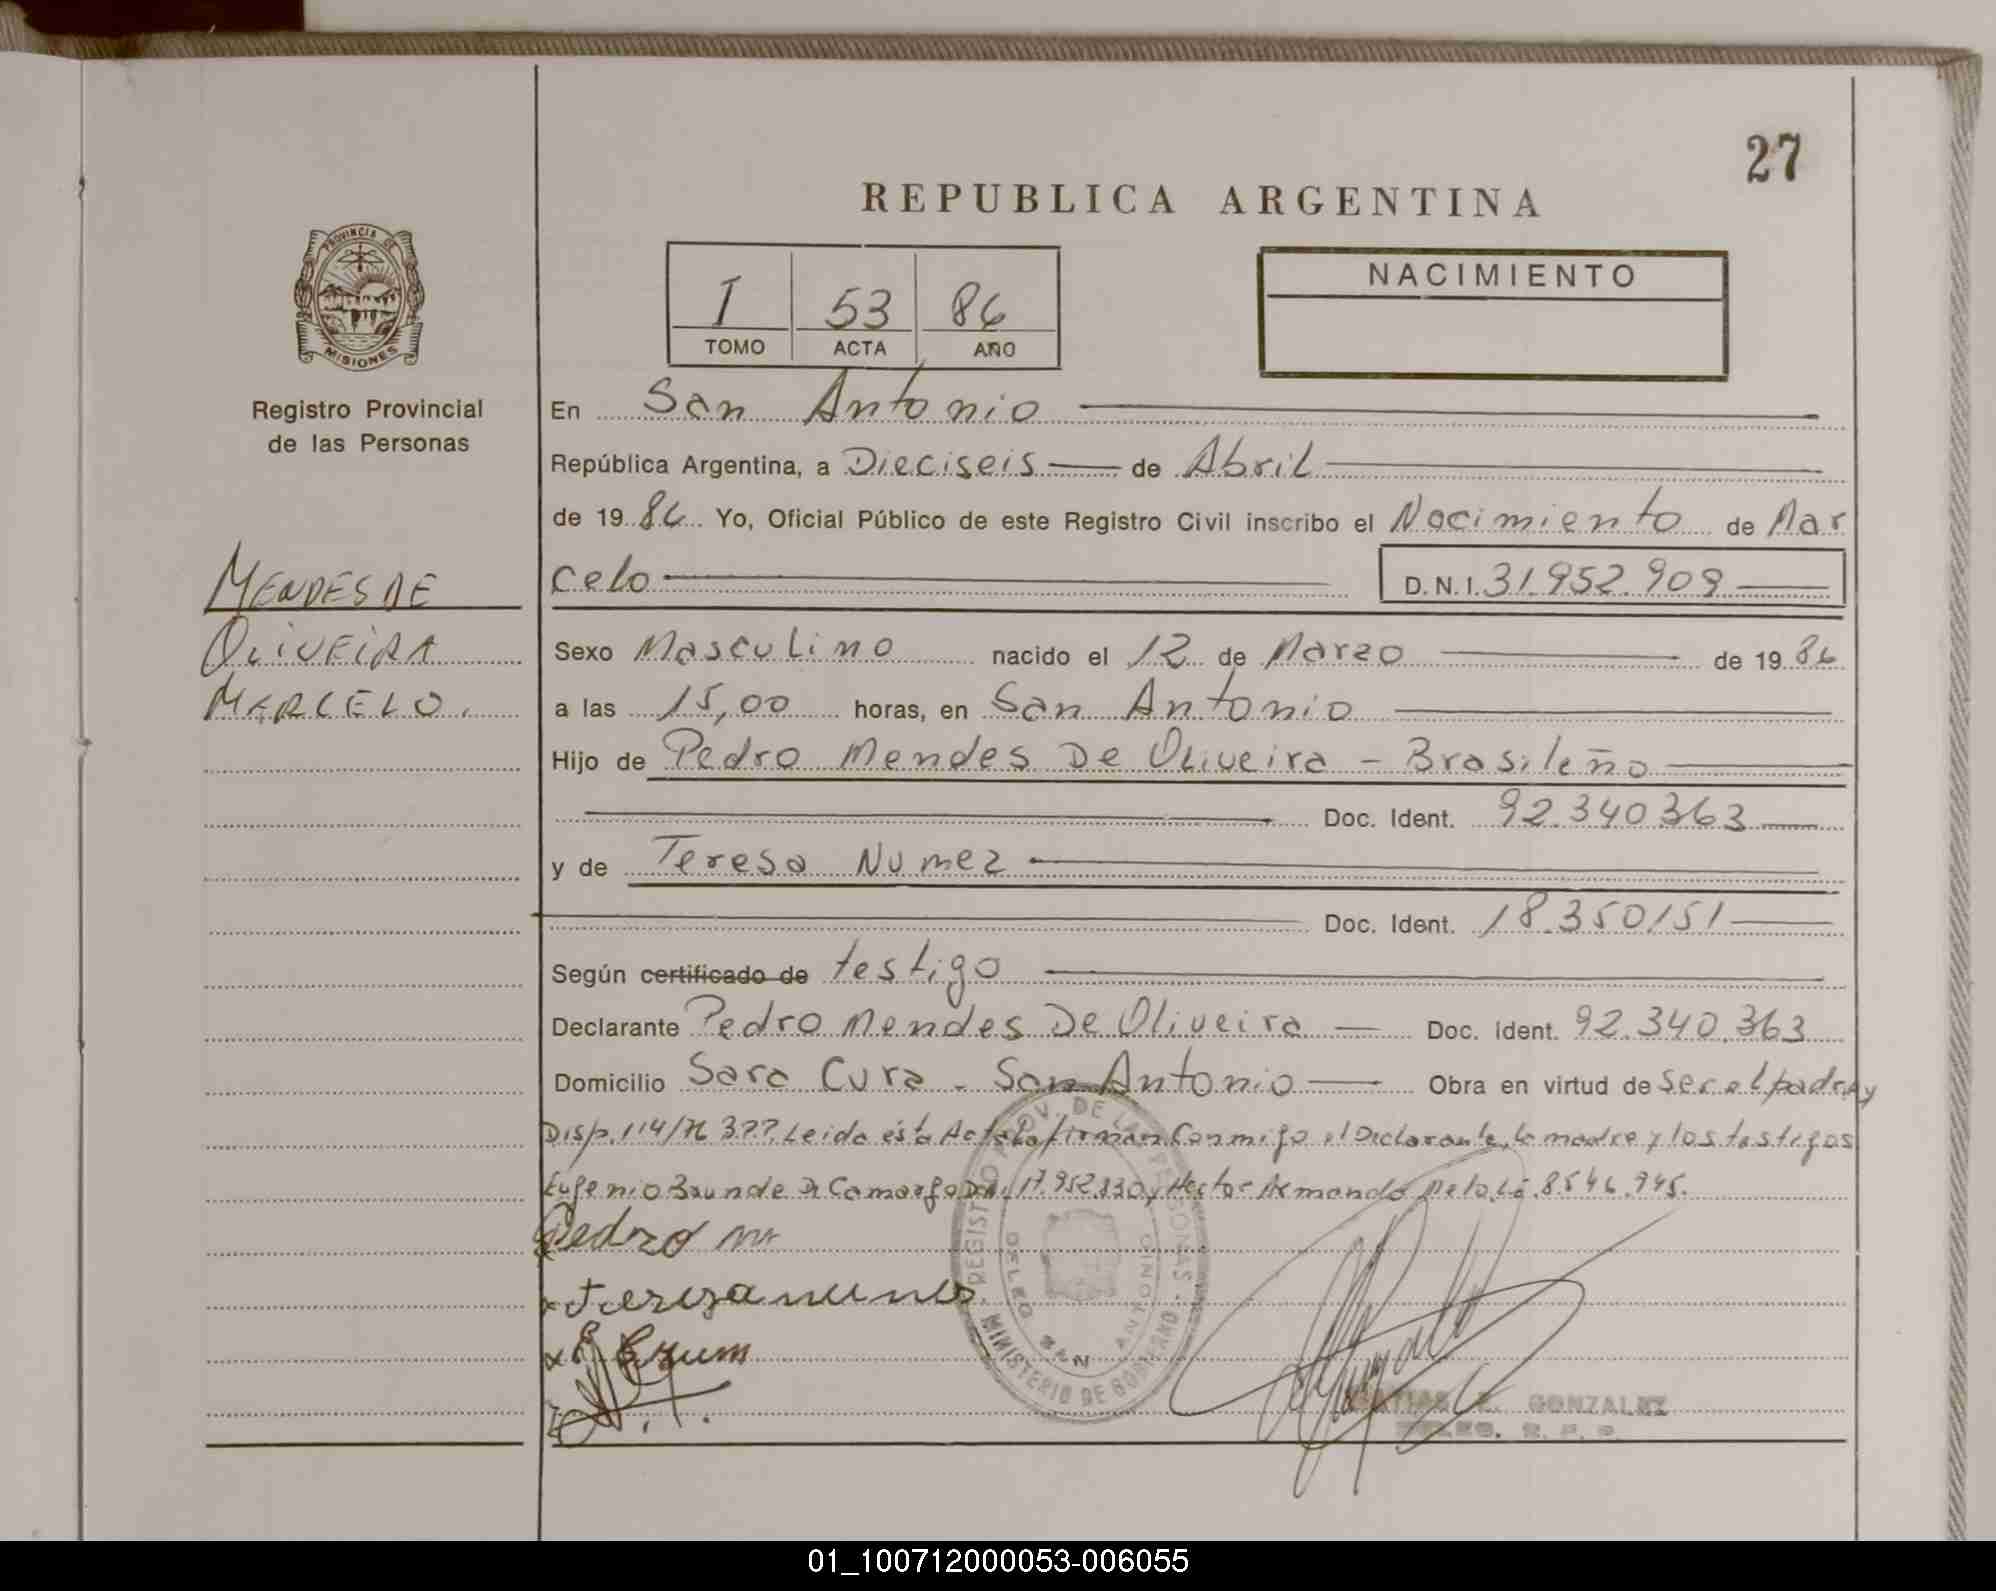 27
REPUBLICA ARGENTINA
PROVINCIA DE
MISIONES
Registro Provincial
de las Personas
I 53 86
TOMO ACTA AÑO
NACIMIENTO
MENDES DE
OLIVEIRA
MARCELO.
En San Antonio
República Argentina, a Dieciseis de Abril
de 1986 Yo, Oficial Público de este Registro Civil inscribo el Nacimiento de Mar
celo D.N.I. 31.952.909
Sexo Masculino nacido el 12 de Marzo de 1986
a las 15,00 horas, en San Antonio
Hijo de Pedro Mendes De Oliveira - Brasileño
Doc. Ident. 92.340363
y de Teresa Numez
Doc. Ident. 18.350151
Según certificado de testigo
Declarante Pedro Mendes De Oliveira Doc. Ident. 92.340.363
Domicilio Sara Cura - San Antonio Obra en virtud de ser el padre y
Disp. 114/76 Leida ésta Acta la firman conmigo el Declarante, la madre y los testigos
Eugenio De Camargo 17.952.830 y Hector Armando 8.546.945.
Pedro m
x Tereza nunes
REGISTRO PROV. DE LAS PERSONAS
DELEG SAN ANTONIO
MINISTERIO DE GOBIERNO
GONZALEZ
01_100712000053-006055